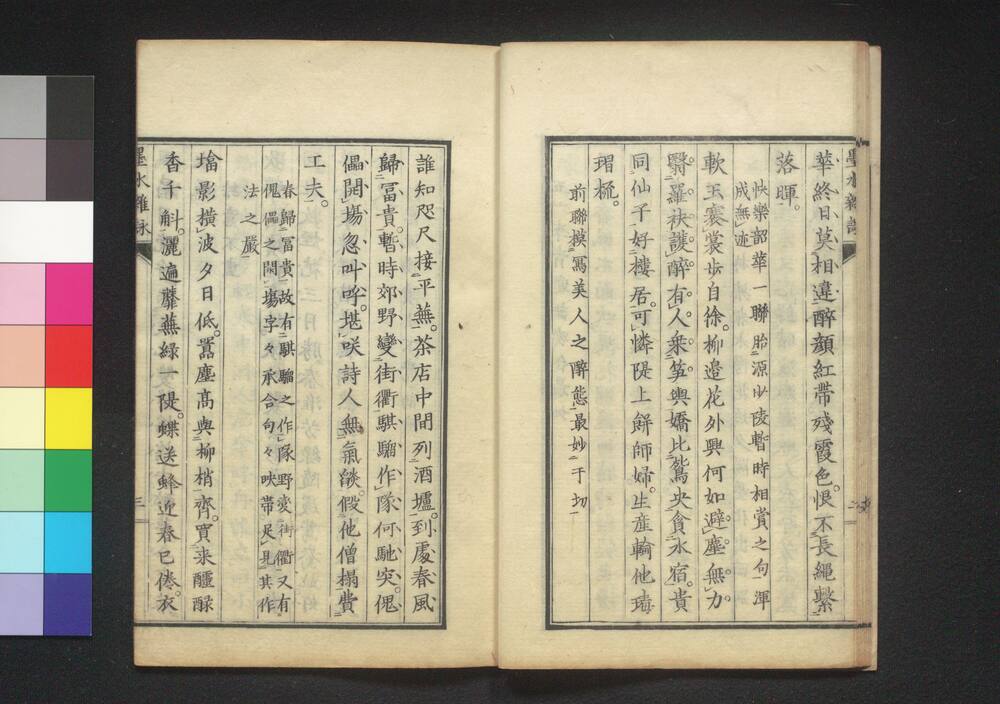 華終日莫相違醉顔紅帶殘霞色。恨不長繩繫
落暉。
快樂韶華一聯胎源少陵暫時相賞之句渾
成無迹
軟玉褰裳歩自徐。柳邉花外興何如避塵無力
翳羅袂護醉有人乘笋輿嬌比鴛央貪水宿。貴
同仙子好樓居。可憐隄上餅師婦。生産輸他瑇
瑁梳。
前聯摸冩美人之醉態最妙于切
誰知咫尺接平蕪。茶店中間列酒壚。到處春風
歸冨貴。暫時郊野變街衢騏驑作隊何馳突。傀
儡開塲忽叫呼。堪咲詩人無氣燄。假他僧榻費
工夫。
春歸冨貴故有騏驑之作隊野変街衢又有
傀儡之開塲字々承合句々映帯足見其作
法之嚴
墖影横波夕日低。嚣塵髙與柳梢齊。買来醽醁
香千斛。灑遍蘼蕪緑一隄。蝶送蜂迎春已倦。衣
墨水雜詠
三